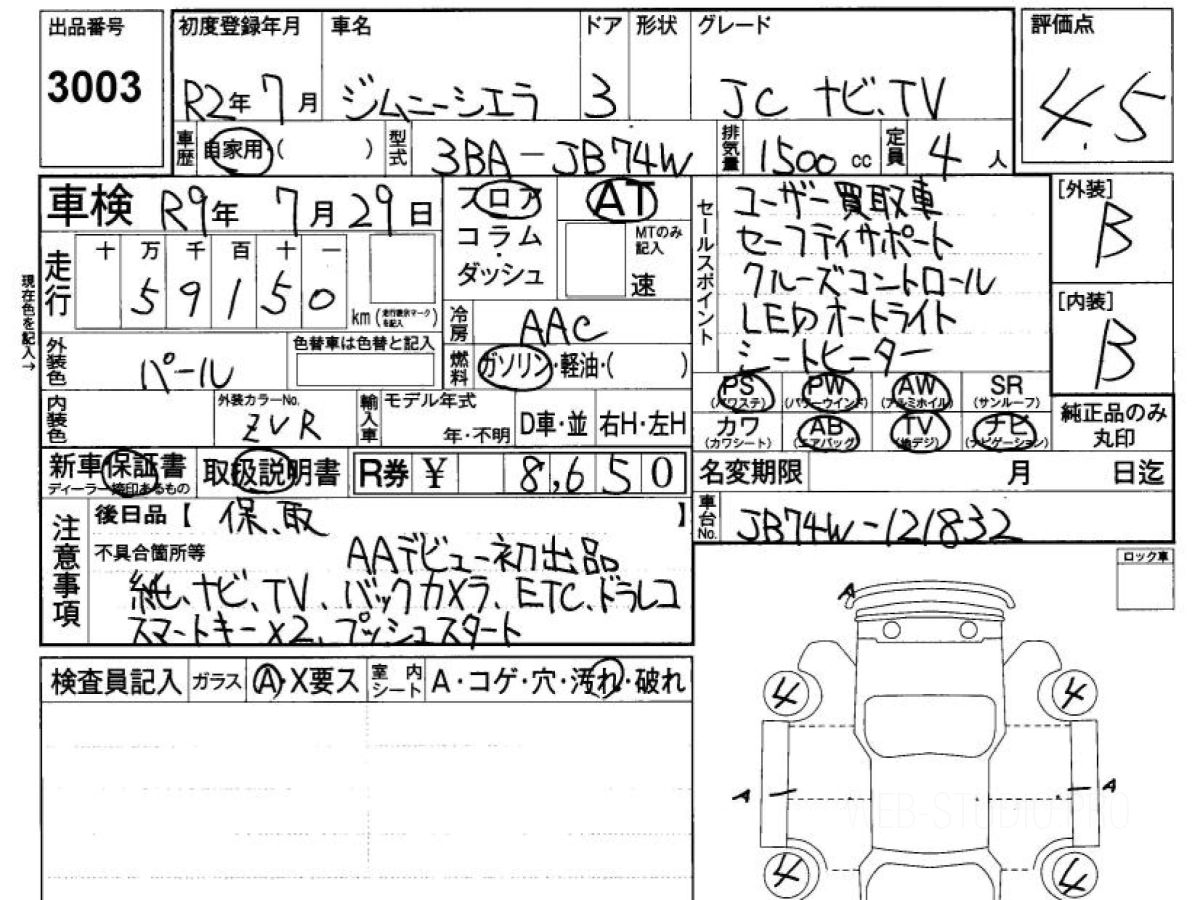 出品番号 初度登録年月 車名 ドア 形状 グレード 評価点
3003 R2年 7月 ジムニーシエラ 3 JC ナビ、TV 4.5
車歴 自家用・( ) 型式 3BA-JB74W 排気量 1500 cc 定員 4 人
車検 R9年 7月29日 フロア AT セールスポイント ユーザー買取車 [外装]
コラム MTのみ記入 セーフティサポート B
走行 十 万 千 百 十 一 ダッシュ 速 クルーズコントロール
現在色を記入→ 5 9 1 5 0 km(走行表示マークを記入) 冷房 AAC LEDオートライト [内装]
外装色 パール 色替車は色替と記入 燃料 ガソリン・軽油・( ) シートヒーター B
PS (パワステ) PW (パワーウインド) AW (アルミホイル) SR (サンルーフ)
内装色 外装カラーNo. ZVR 輸入車 モデル年式 年・不明 D車・並 右H・左H カワ (カワシート) AB (エアバッグ) TV (地デジ) ナビ (ナビゲーション) 純正品のみ丸印
新車保証書 取扱説明書 R券 ¥ 8,650 名変期限 月 日迄
ディーラー捺印あるもの
注意事項 後日品【 保、取 】 車台No. JB74W-121832
不具合箇所等 AAデビュー初出品 ロック車
純、ナビ、TV、バックカメラ、ETC、ドラレコ
スマートキーx2、プッシュスタート
A
検査員記入 ガラス A・X要ス 室内シート A・コゲ・穴・汚れ・破れ
4 4
A A
WEB-STUDIO.PRO
4 4